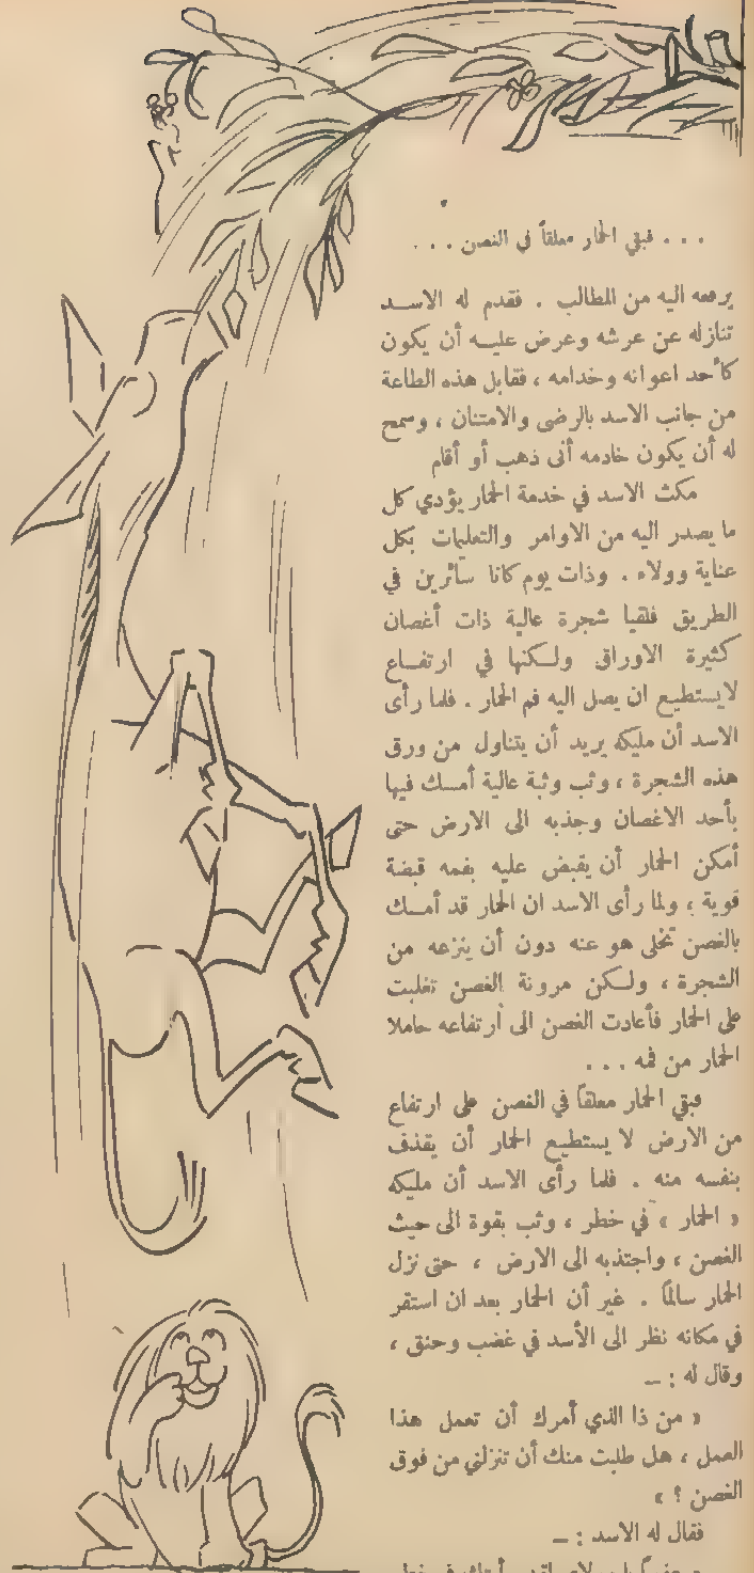 . . . فبقي الحمار معلقاً في الغصن . . .
يرفعه اليه من المطالب . فقدم له الاسد
تنازله عن عرشه وعرض عليه أن يكون
كأحد اعوانه وخدامه ، فقابل هذه الطاعة
من جانب الاسد بالرضى والامتنان ، وسمح
له أن يكون خادمه أنى ذهب أو أقام
مكث الاسد في خدمة الحمار يؤدي كل
ما يصدر اليه من الاوامر والتعليمات بكل
عناية وولاء . وذات يوم كانا سائرين في
الطريق فلقيا شجرة عالية ذات أغصان
كثيرة الاوراق ولكنها في ارتفاع
لايستطيع ان يصل اليه فم الحمار . فلما رأى
الاسد أن مليكه يريد أن يتناول من ورق
هذه الشجرة ، وثب وثبة عالية أمسك فيها
بأحد الاغصان وجذبه الى الارض حتى
أمكن الحمار أن يقبض عليه بفمه قبضة
قوية ، ولما رأى الاسد ان الحمار قد أمسك
بالغصن تخلى هو عنه دون أن ينزعه من
الشجرة ، ولكن مرونة الغصن تغلبت
على الحمار فأعادت الغصن الى ارتفاعه حاملا
الحمار من فمه . . .
فبقي الحمار معلقاً في الغصن على ارتفاع
من الارض لا يستطيع الحمار أن يقذف
بنفسه منه . فلما رأى الاسد أن مليكه
« الحمار » في خطر ، وثب بقوة الى حيث
الغصن ، واجتذبه الى الارض ، حتى نزل
الحمار سالماً . غير أن الحمار بعد ان استقر
في مكانه نظر الى الأسد في غضب وحنق ،
وقال له : —
« من ذا الذي أمرك أن تعمل هذا
العمل ، هل طلبت منك أن تنزلني من فوق
الغصن ؟ »
فقال له الاسد : —